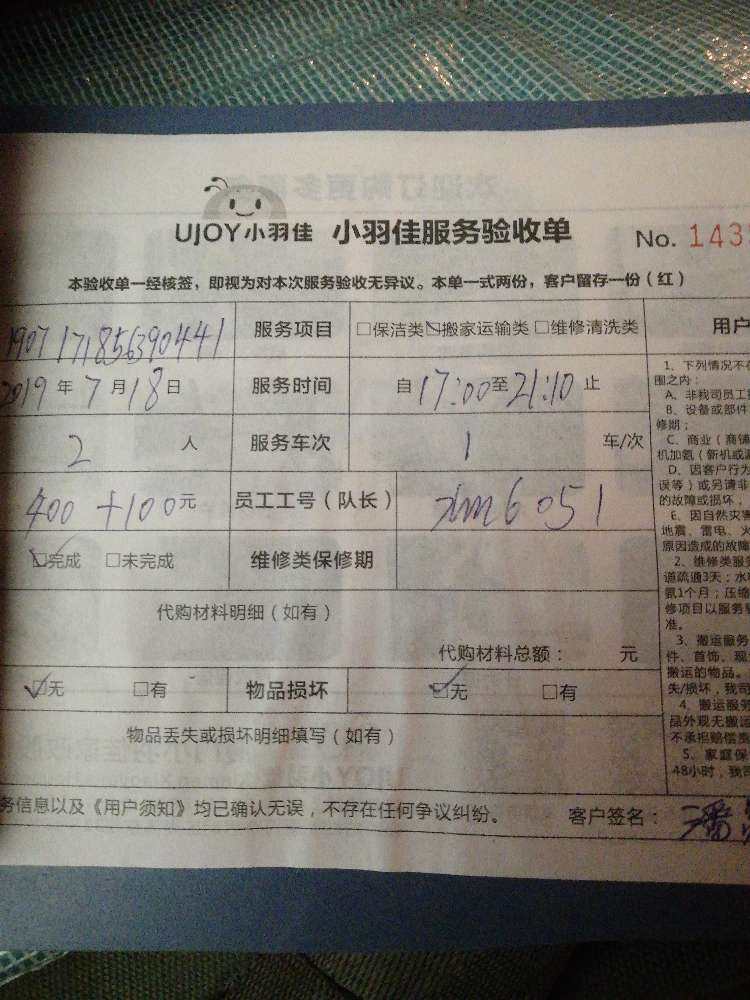 UJOY小羽佳 小羽佳服务验收单 No. 143
本验收单一经核签，即视为对本次服务验收无异议。本单一式两份，客户留存一份（红）
1907171856390441 服务项目 □保洁类☑搬家运输类□维修清洗类 用户
2019年7月18日 服务时间 自17:00至21:10止
2人 服务车次 1车/次
400+100元 员工工号（队长） xm6051
☑完成 □未完成 维修类保修期
代购材料明细（如有）
代购材料总额： 元
☑无 □有 物品损坏 ☑无 □有
物品丢失或损坏明细填写（如有）
务信息以及《用户须知》均已确认无误，不存在任何争议纠纷。 客户签名：潘
1、下列情况不在
围之内：
A、非我司员工
B、设备或部件
修期；
C、商业（商铺
机加氨（新机或
D、因客户行为
误等）或另请非
的故障或损坏，
E、因自然灾害
地震、雷电、火
原因造成的故障
2、维修类服务
道疏通3天；水
氨1个月；压缩
修项目以服务
准。
3、搬运服务
件、首饰、现
搬运的物品。
失/损坏，我司
4、搬运服务
品外观无搬运
不承担赔偿责
5、家庭保
48小时，我